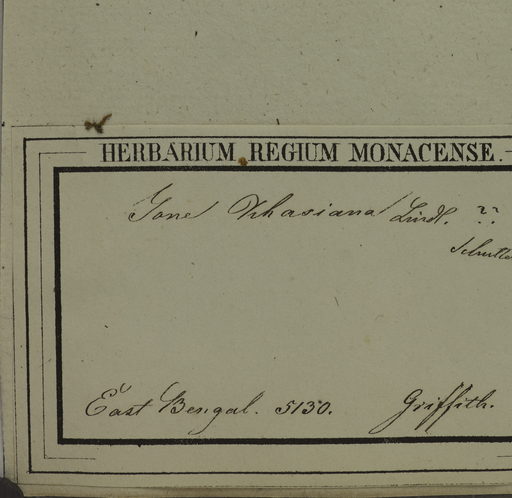 HERBARIUM REGIUM MONACENSE.
Ione Khasiana Lindl. ??
East Bengal. 5130. Griffith.